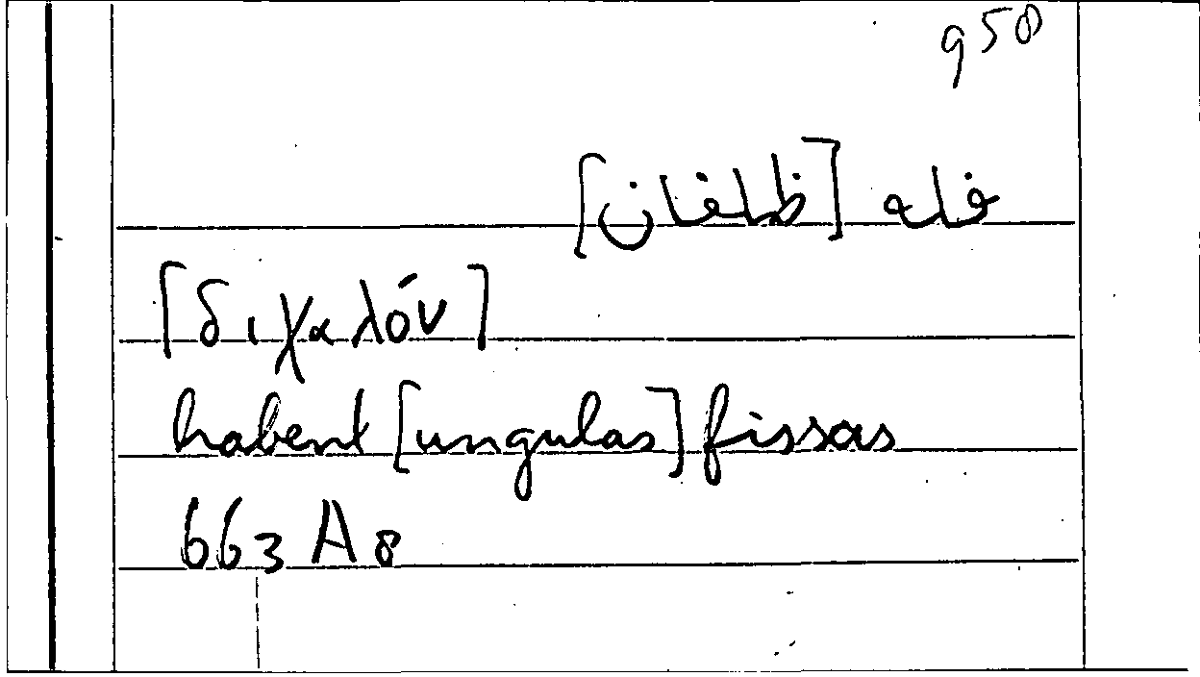 958
فله [ظلفان]
[διχαλόν]
habent [ungulas] fissas
663 A 8